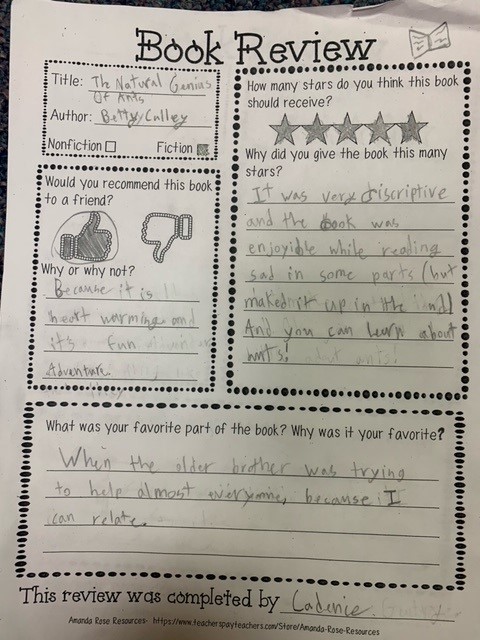 Book Review
Title: The Natural Genius
Of Ants
Author: Betty Culley
Nonfiction
Fiction
How many stars do you think this book
should receive?
Why did you give the book this many
stars?
It was very discriptive
and the book was
enjoyible while reading
sad in some parts (but
maked it up in the end)
And you can learn about
ants!
Would you recommend this book
to a friend?
Why or why not?
Because it is
heart warming and
it's fun
Adventure.
What was your favorite part of the book? Why was it your favorite?
When the older brother was trying
to help almost everyone, because I
can relate.
This review was completed by Cadence
Amanda Rose Resources- https://www.teacherspayteachers.com/Store/Amanda-Rose-Resources